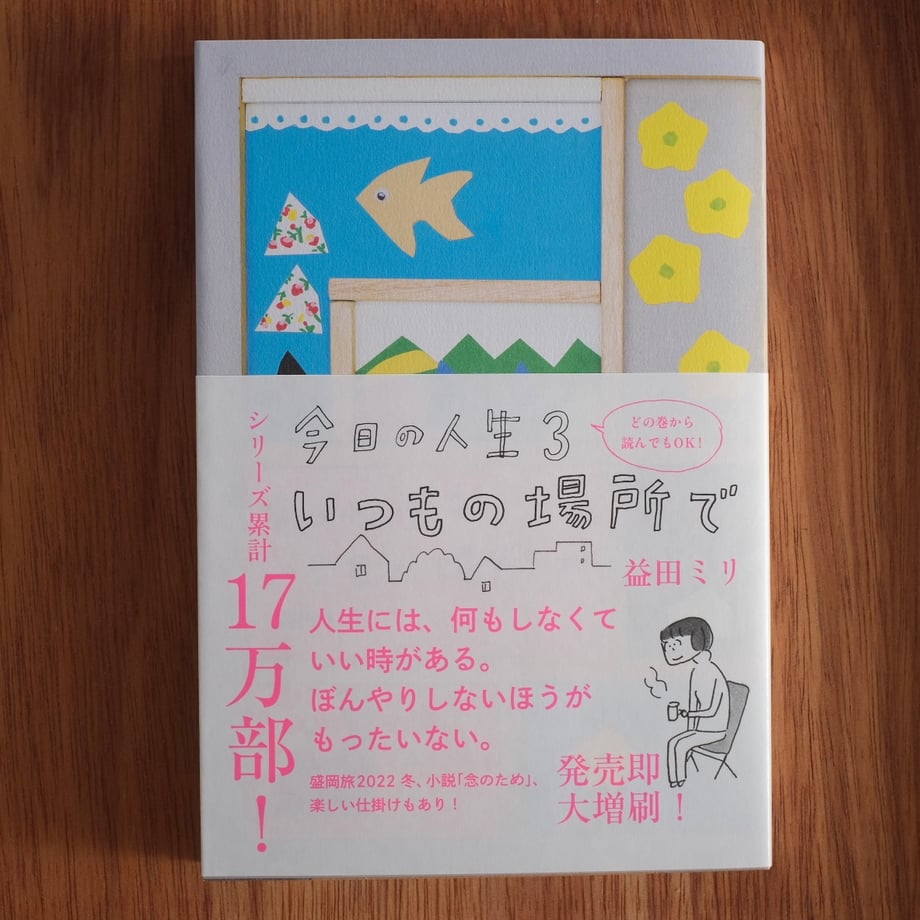 今日の人生3
いつもの場所で
どの巻から
読んでもOK！
益田ミリ
シリーズ累計
17万部！
人生には、何もしなくて
いい時がある。
ぼんやりしないほうが
もったいない。
盛岡旅2022 冬、小説「念のため」、
楽しい仕掛けもあり！
発売即
大増刷！